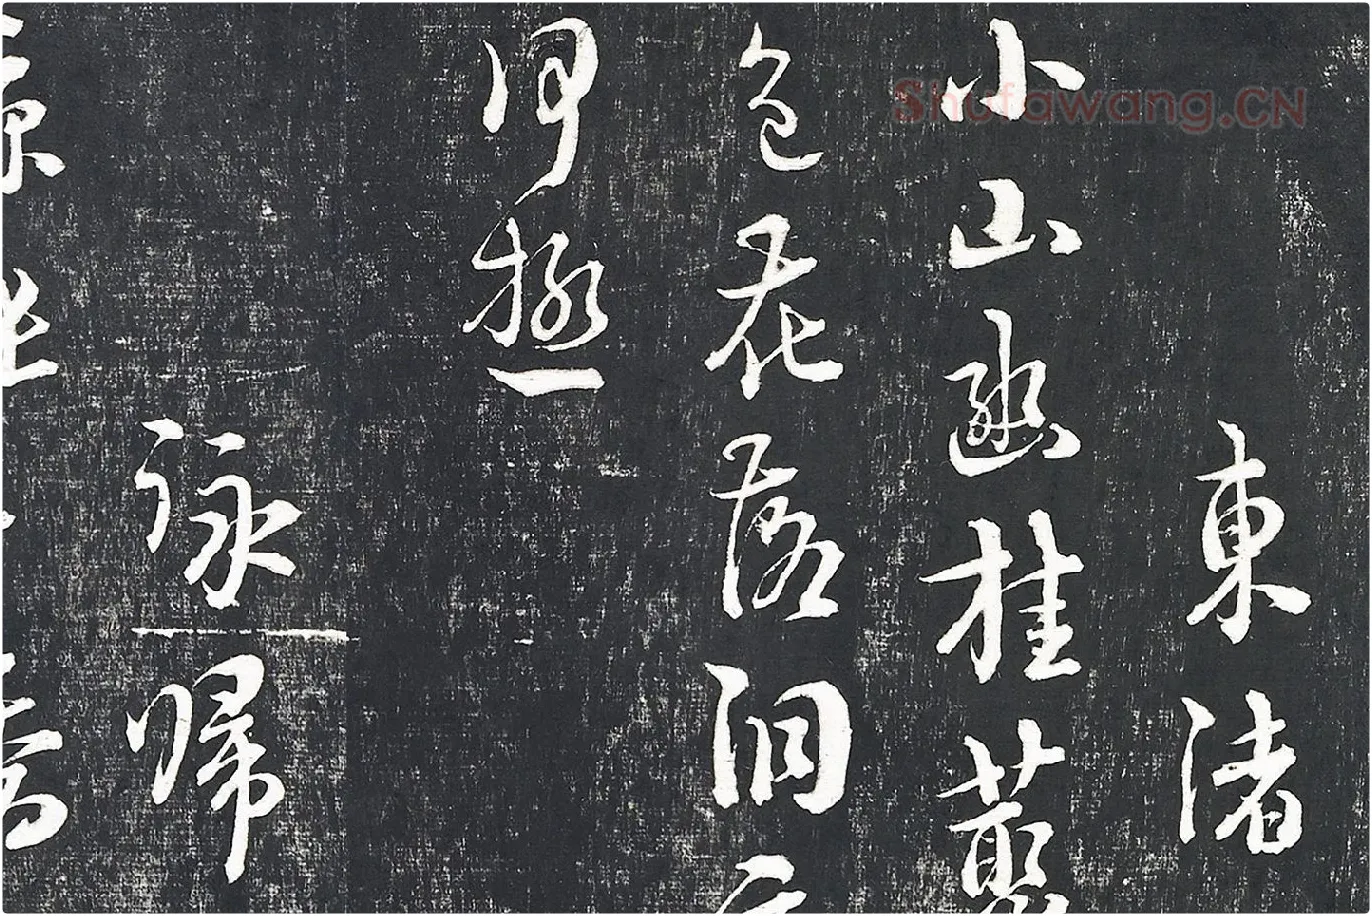 Shufawang.CN
東渚
小山幽桂藂
色花落洞
何極
詠歸